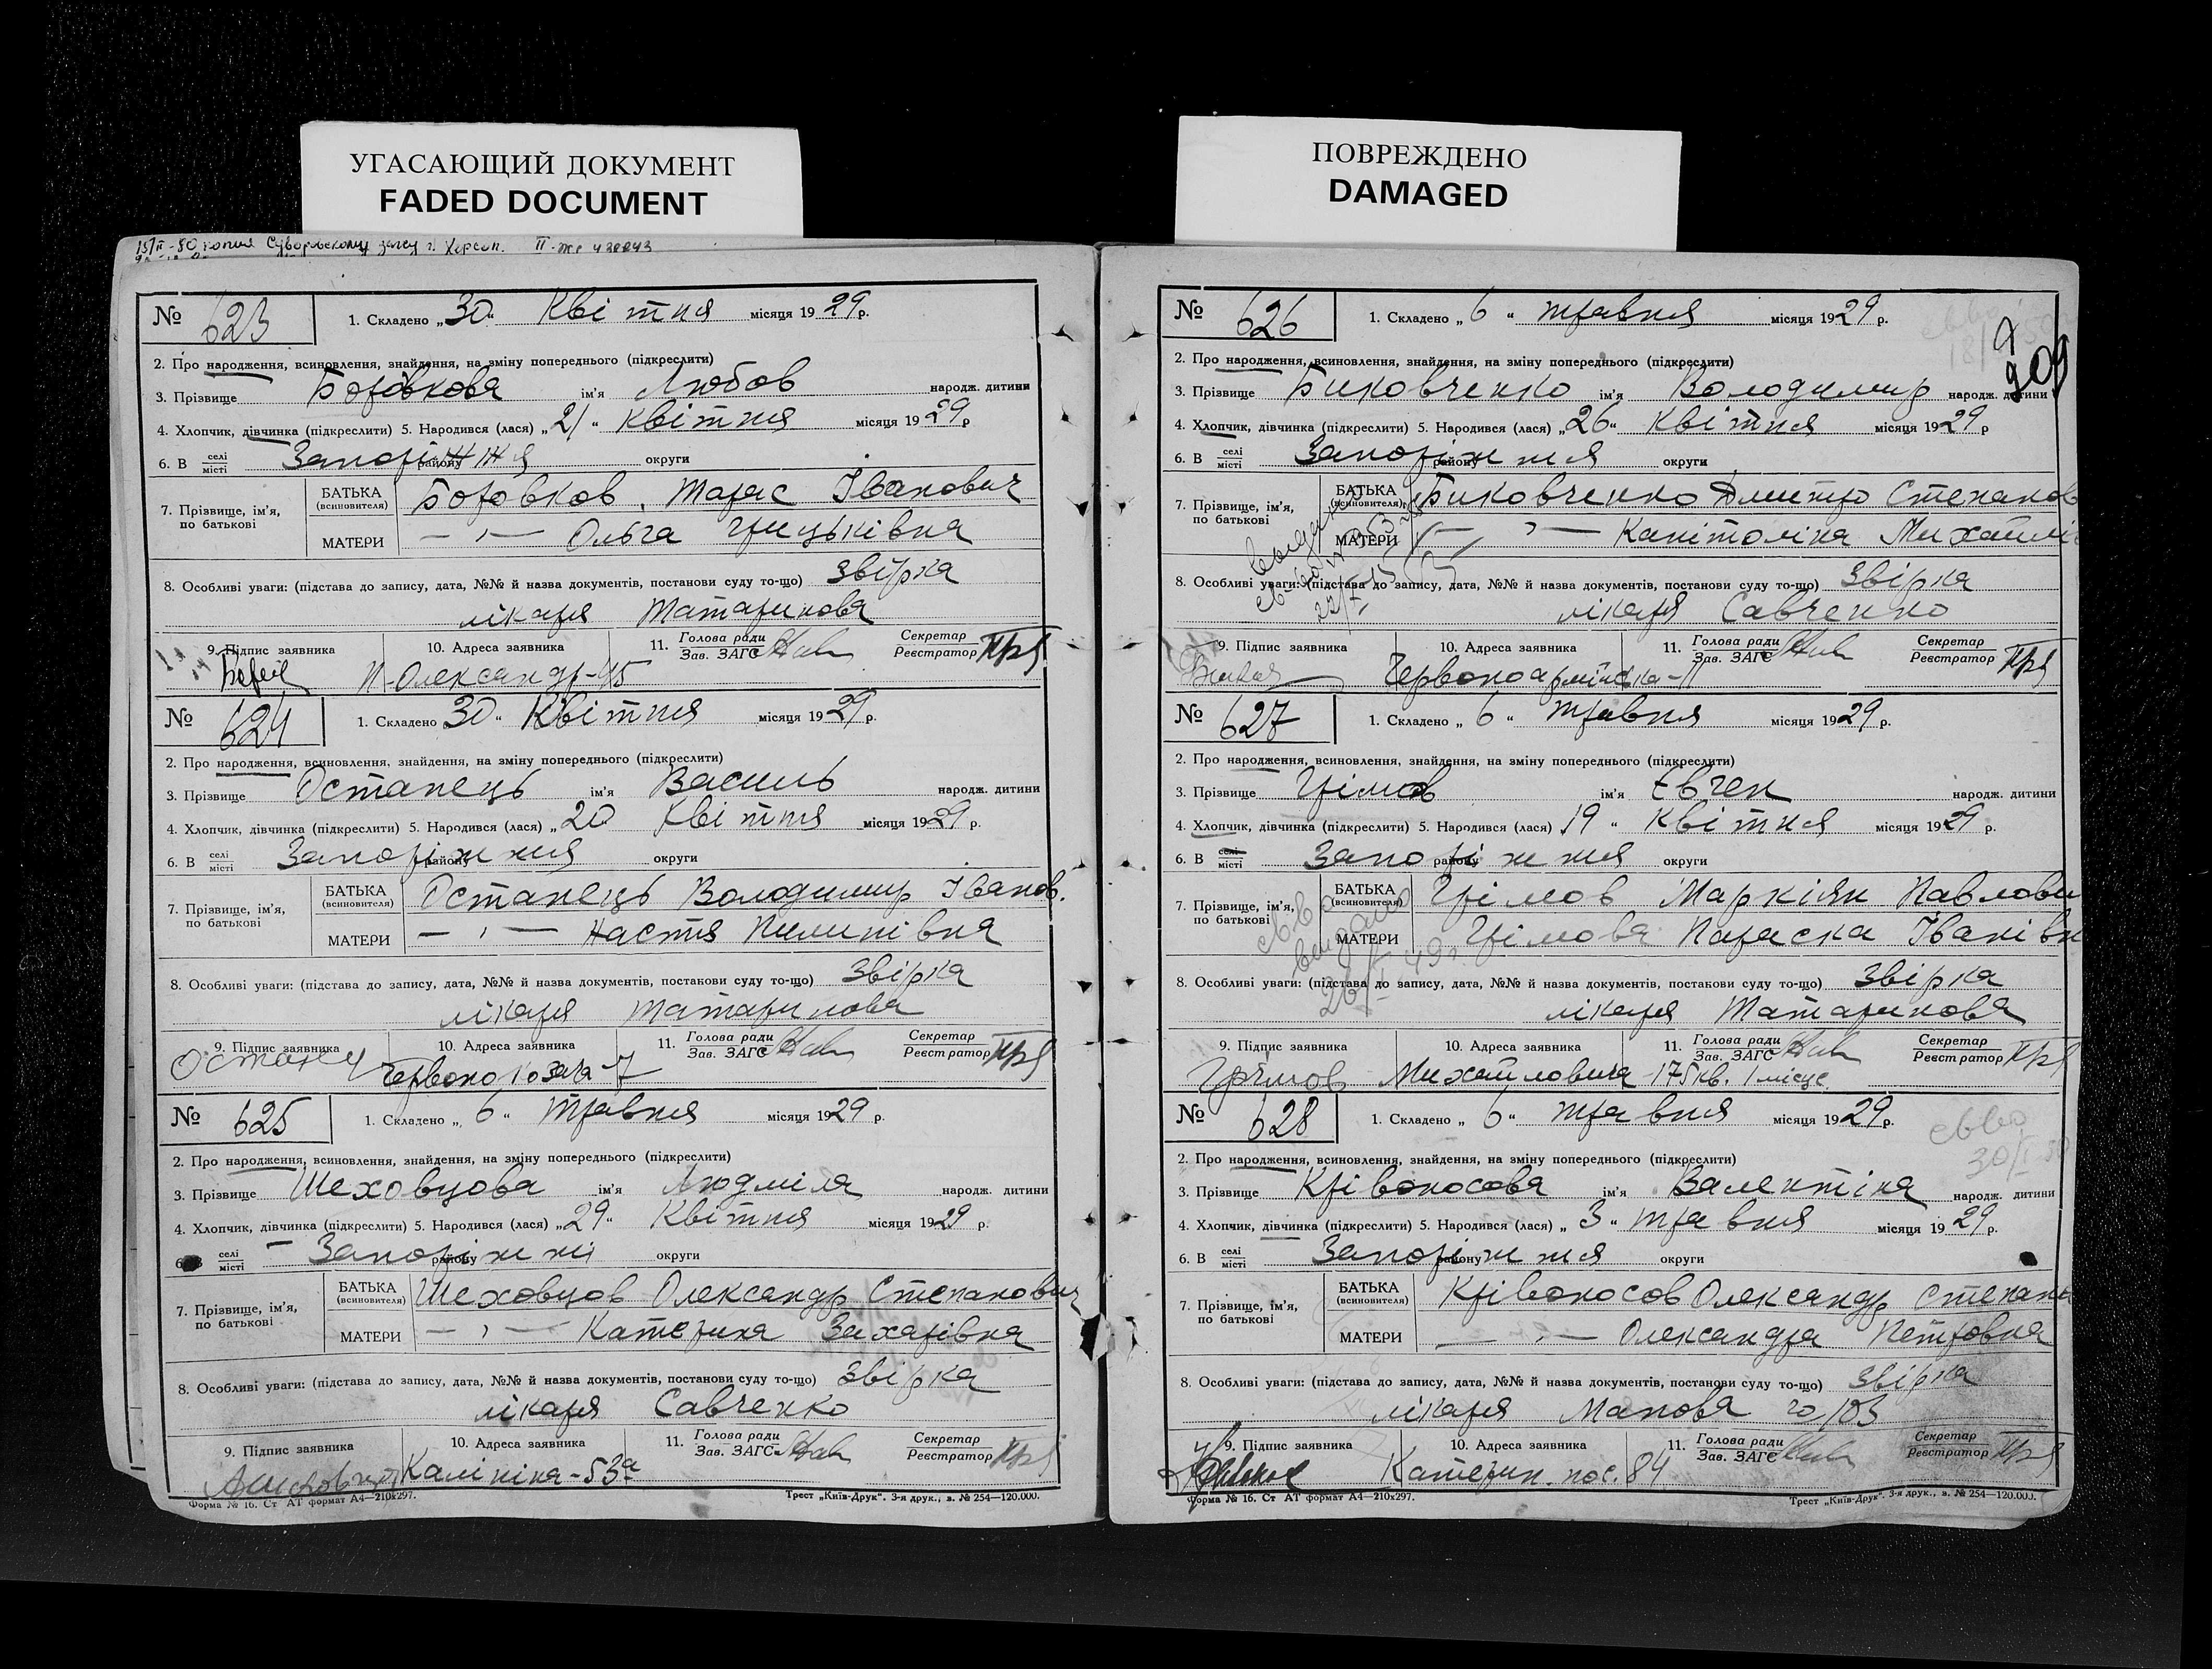 УГАСАЮЩИЙ ДОКУМЕНТ
FADED DOCUMENT
15/II-80 копия Суворовскому загсу г. Херсон.
№ 623 1. Складено „30“ Квітня місяця 1929 р.
2. Про народження, всиновлення, знайдення, на зміну попереднього (підкреслити)
3. Прізвище Боровкова ім'я Любов народж. дитини
4. Хлопчик, дівчинка (підкреслити) 5. Народився (лася) „21“ Квітня місяця 1929 р
6. В селі місті Запоріжжя району округи
7. Прізвище, ім'я, по батькові БАТЬКА (всиновителя) Боровков Тарас Іванович
МАТЕРИ — „ — Ольга Грицьківна
8. Особливі уваги: (підстава до запису, дата, №№ й назва документів, постанови суду то-що) Звірка
лікаря Татаринова
9. Підпис заявника 10. Адреса заявника 11. Голова ради Зав. ЗАГС Секретар Реєстратор
П-Олександр-45
№ 624 1. Складено 30“ Квітня місяця 1929 р.
2. Про народження, всиновлення, знайдення, на зміну попереднього (підкреслити)
3. Прізвище Остапець ім'я Василь народж. дитини
4. Хлопчик, дівчинка (підкреслити) 5. Народився (лася) „20 Квітня місяця 1929 р.
6. В селі місті Запоріжжя району округи
7. Прізвище, ім'я, по батькові БАТЬКА (всиновителя) Остапець Володимир Іванов.
МАТЕРИ — „ — Настя Пилипівна
8. Особливі уваги: (підстава до запису, дата, №№ й назва документів, постакови суду то-що) Звірка
лікаря Татаринова
9. Підпис заявника 10. Адреса заявника 11. Голова ради Зав. ЗАГС Секретар Реєстратор
Червоно козача-7
№ 625 1. Складено „ 6 “ травня місяця 1929 р.
2. Про народження, всиновлення, знайдення, на зміну попереднього (підкреслити)
3. Прізвище Шеховцова ім'я Людміла народж. дитини
4. Хлопчик, дівчинка (підкреслити) 5. Народився (лася) „29“ Квітня місяця 1929 р.
6. В селі місті Запоріжжі району округи
7. Прізвище, ім'я, по батькові БАТЬКА (всиновителя) Шеховцов Олександр Степанович
МАТЕРИ — „ — Катерина Захарівна
8. Особливі уваги: (підстава до запису, дата, №№ й назва документів, постанови суду то-що) Звірка
лікаря Савченко
9. Підпис заявника 10. Адреса заявника 11. Голова ради Зав. ЗАГС Секретар Реєстратор
Калініна-53а
Форма № 16. Ст АТ формат А4—210х297. Трест „Київ-Друк“. 3-я друк., в. № 254—120.000.
ПОВРЕЖДЕНО
DAMAGED
№ 626 1. Складено „ 6 “ травня місяця 1929 р.
2. Про народження, всиновлення, знайдення, на зміну попереднього (підкреслити)
3. Прізвище Биковченко ім'я Володимир народж. дитини
4. Хлопчик, дівчинка (підкреслити) 5. Народився (лася) „26“ Квітня місяця 1929 р
6. В селі місті Запоріжжя району округи
7. Прізвище, ім'я, по батькові БАТЬКА (всиновителя) Биковченко Дмитро Степанов
МАТЕРИ — „ — Капітоліна Михайлі
8. Особливі уваги: (підстава до запису, дата, №№ й назва документів, постанови суду то-що) Звірка
лікаря Савченко
9. Підпис заявника 10. Адреса заявника 11. Голова ради Зав. ЗАГС Секретар Реєстратор
Червоноармійська-11
№ 627 1. Складено „ 6 “ травня місяця 1929 р.
2. Про народження, всиновлення, знайдення, на зміну попереднього (підкреслити)
3. Прізвище Грімов ім'я Евген народж. дитини
4. Хлопчик, дівчинка (підкреслити) 5. Народився (лася) „19 “ Квітня місяця 1929 р.
6. В селі місті Запоріжжя району округи
7. Прізвище, ім'я, по батькові БАТЬКА (всиновителя) Грімов Маркіян Павлови
МАТЕРИ Грімова Параска Іванівн
8. Особливі уваги: (підстава до запису, дата, №№ й назва документів, постакови суду то-що) Звірка
лікаря Татаринова
9. Підпис заявника 10. Адреса заявника 11. Голова ради Зав. ЗАГС Секретар Реєстратор
Михайловича-175 кв. 1 місце
№ 628 1. Складено „ 6 “ травня місяця 1929 р.
2. Про народження, всиновлення, знайдення, на зміну попереднього (підкреслити)
3. Прізвище Крівоносова ім'я Валентіна народж. дитини
4. Хлопчик, дівчинка (підкреслити) 5. Народився (лася) „ 3 “ травня місяця 1929 р.
6. В селі місті Запоріжжя району округи
7. Прізвище, ім'я, по батькові БАТЬКА (всиновителя) Крівоносов Олександр Степано
МАТЕРИ — „ — Олександра Петровна
8. Особливі уваги: (підстава до запису, дата, №№ й назва документів, постанови суду то-що) Звірка
лікаря Манова
9. Підпис заявника 10. Адреса заявника 11. Голова ради Зав. ЗАГС Секретар Реєстратор
Катерин. пос. 84
Форма № 16. Ст АТ формат А4—210х297. Трест „Київ-Друк“. 3-я друк., в. № 254—120.000.